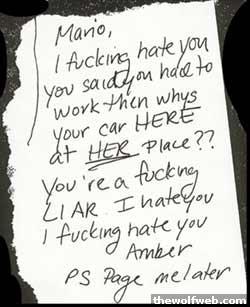 Mario,
I fucking hate you
you said you had to
work then whys
your car HERE
at HER place??
You're a fucking
LIAR. I hate you
I fucking hate you
Amber
PS Page me later
thewolfweb.com